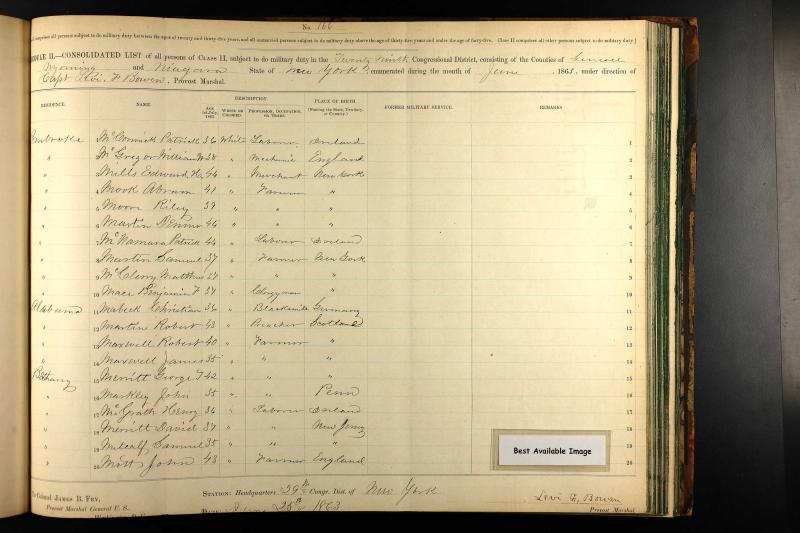 No. 166
comprises all persons subject to do military duty between the ages of twenty and thirty-five years, and all unmarried persons subject to do military duty above the age of thirty-five years and under the age of forty-five. Class II comprises all other persons subject to do military duty.]
II.—CONSOLIDATED LIST of all persons of CLASS II, subject to do military duty in the Twenty Ninth Congressional District, consisting of the Counties of
Wyoming and Niagara State of New York, enumerated during the month of June, 1863, under direction of
Capt Levi F Bowen, Provost Marshal.
DESCRIPTION.
RESIDENCE. NAME AGE 1st July, 1863 WHITE OR COLORED. PROFESSION, OCCUPATION, OR TRADE. PLACE OF BIRTH. (Naming the State, Territory, or Country.) FORMER MILITARY SERVICE. REMARKS
Pembroke 1 McCormick Patrick 36 White Laborer Ireland 1
" 2 McGregor William 38 " Mechanic England 2
" 3 Mills Edward 44 " Merchant New York 3
" 4 Mook Abram 41 " Farmer " 4
" 5 Moore Riley 39 " " " 5
" 6 Martin 44 " " " 6
" 7 McNamara Patrick 44 " Laborer Ireland 7
" 8 Martin Samuel 37 " Farmer New York 8
" 9 McClerry Matthew 37 " " " 9
" 10 Mace Benjamin F 37 " Clergyman " 10
Alabama 11 Mabeck Christian 36 " Blacksmith Germany 11
" 12 Martin Robert 43 " Preacher Scotland 12
" 13 Maxwell Robert 40 " Farmer " 13
" 14 Maxwell James 35 " " " 14
Bethany 15 Merritt George T 42 " " " 15
" 16 Markley John 35 " " Penn 16
" 17 McGrath Henry 36 " Laborer Ireland 17
" 18 Merritt David 37 " " New Jersey 18
" 19 Metcalf Samuel 35 " " " 19
" 20 Mott John 43 " Farmer England 20
Best Available Image
Colonel JAMES B. FRY,
Provost Marshal General U. S.,
STATION: Headquarters 29th Congr. Dist. of New York
DATE: June 25th 1863
Levi F. Bowen
Provost Marshal.